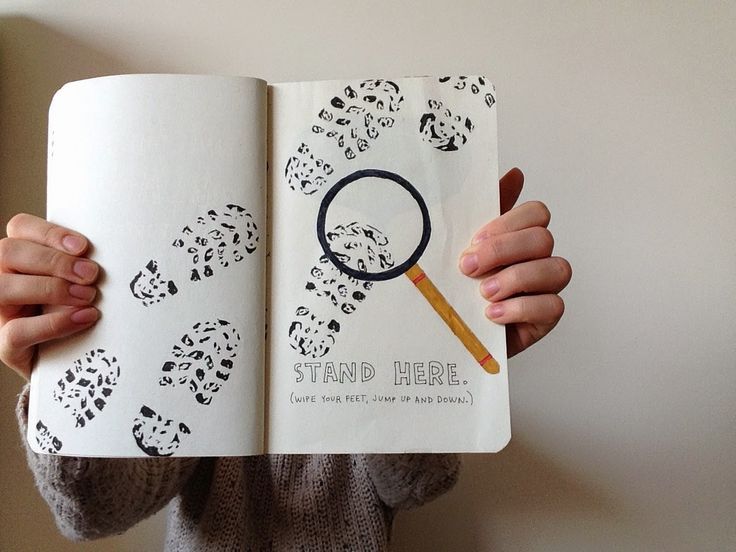 STAND HERE.
(WIPE YOUR FEET, JUMP UP AND DOWN.)